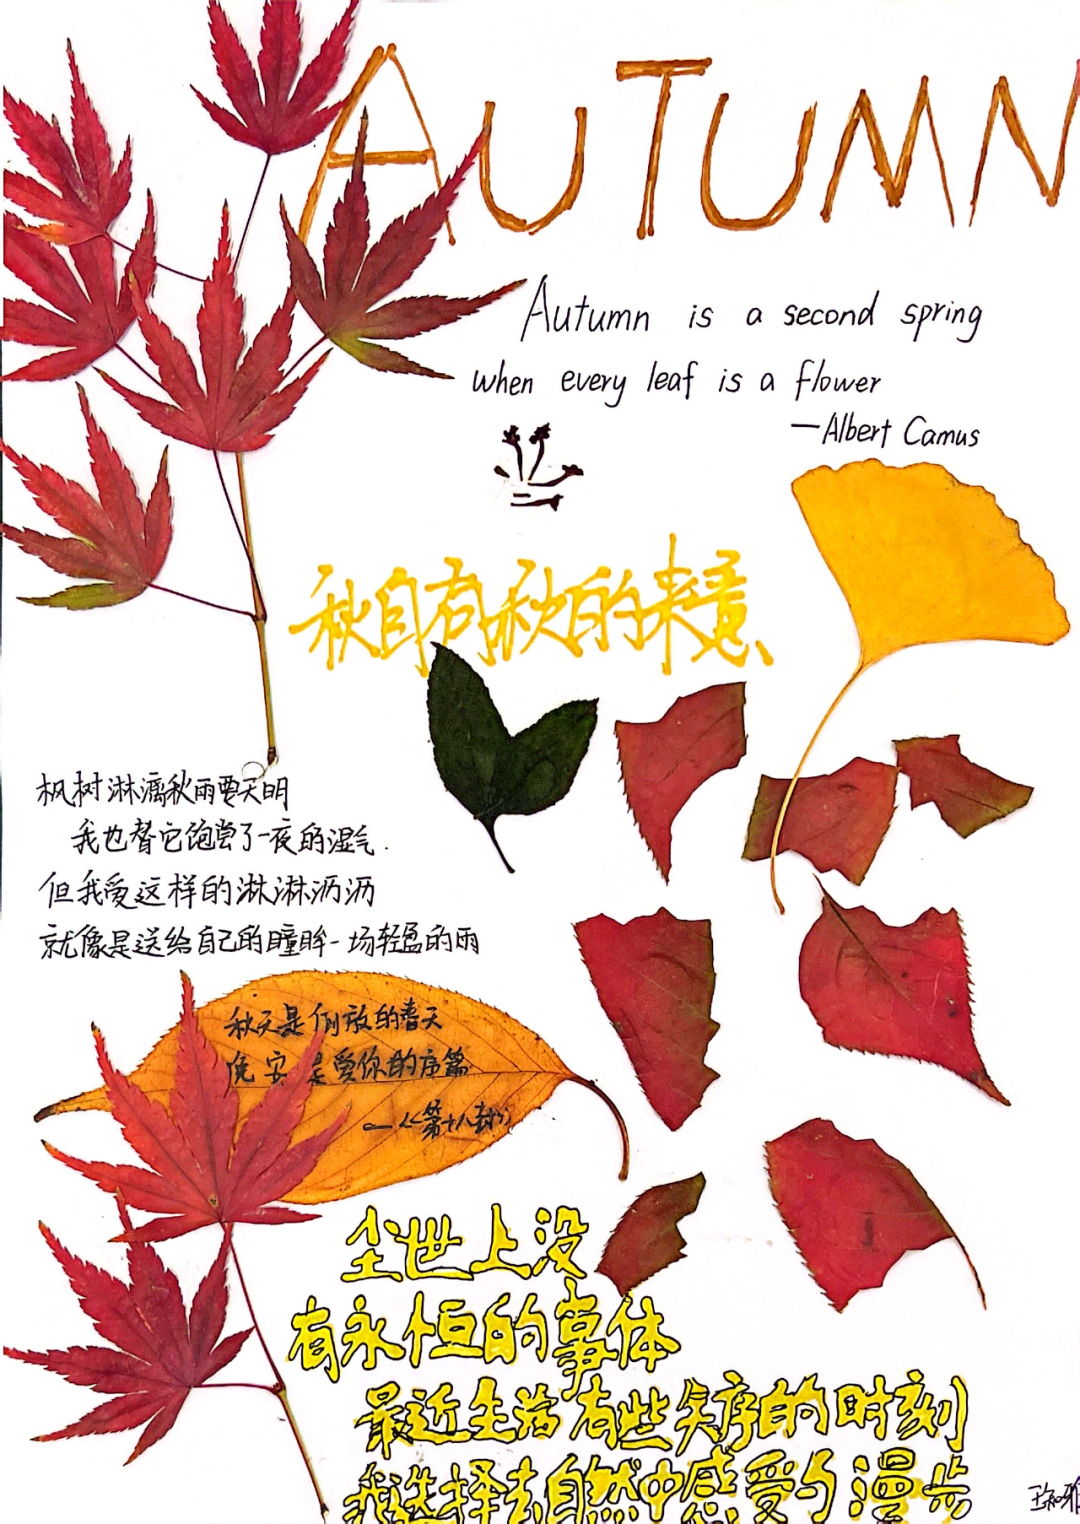 AUTUMN
Autumn is a second spring
when every leaf is a flower
—Albert Camus
秋自有秋的来意、
枫树淋漓秋雨要天明
我也替它饱尝了一夜的湿气.
但我爱这样的淋淋沥沥
就像是送给自己的瞳眸一场轻盈的雨
秋天是倒放的春天
晚安是爱你的序篇
—《第十八封》
尘世上没
有永恒的事体
最近生活有些失序的时刻
我选择去自然中感受与漫步